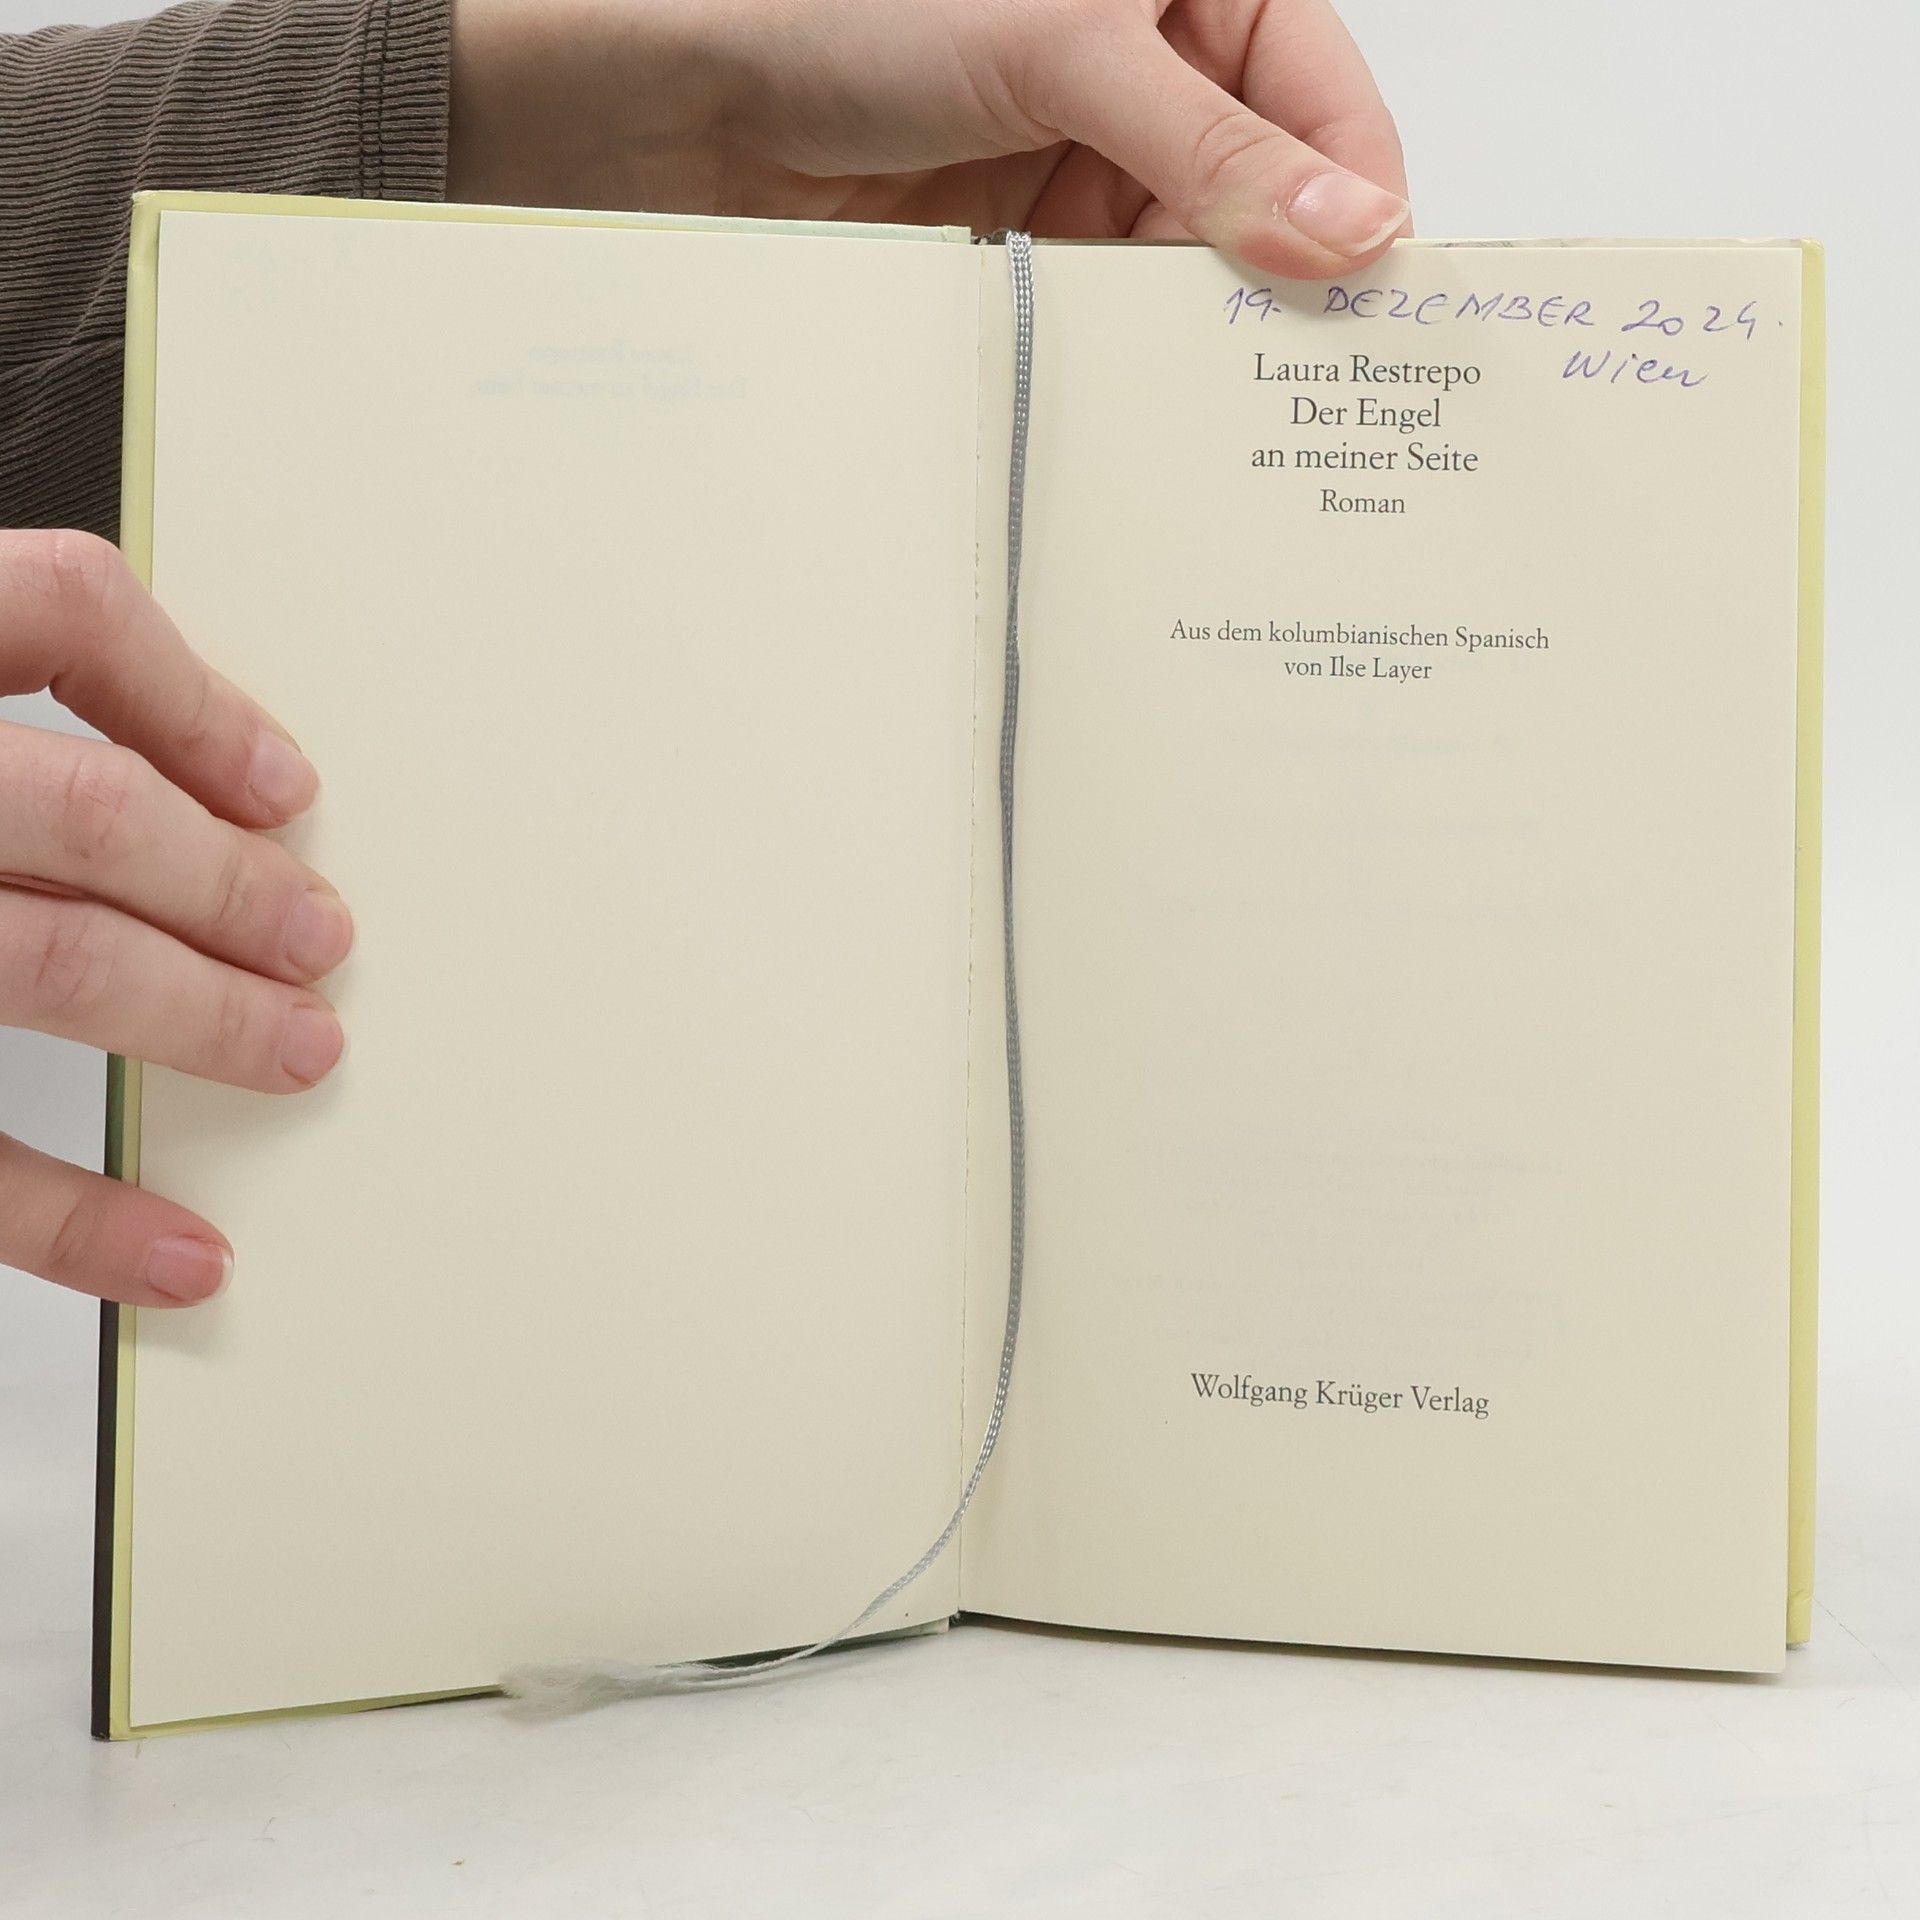 19. DEZEMBER 2024.
Wien
Laura Restrepo
Der Engel
an meiner Seite
Roman
Aus dem kolumbianischen Spanisch
von Ilse Layer
Wolfgang Krüger Verlag